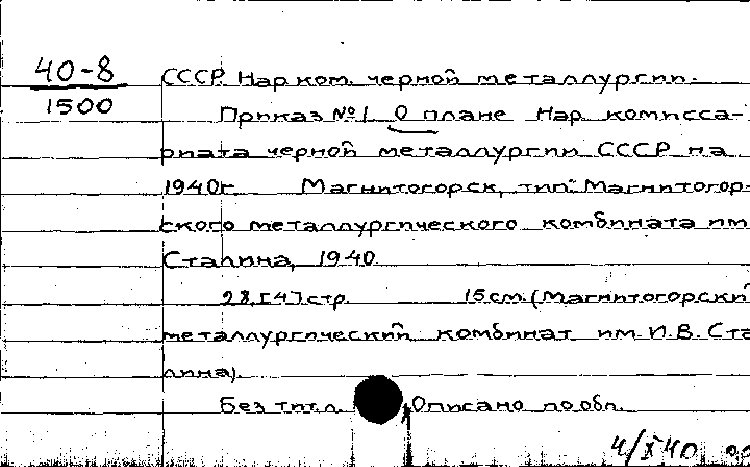 40-8
1500
СССР. Нар. ком. черной металлургии.
Приказ №1 О плане Нар. комисса-
риата черной металлургии СССР на
1940г. Магнитогорск, тип. Магнитогор-
ского металлургического комбината им
Сталина, 1940.
28,[4] стр. 15 см. (Магнитогорский
металлургический комбинат им. И.В. Ста
лина).
Без тит.л. Описано по обл.
4/X 40